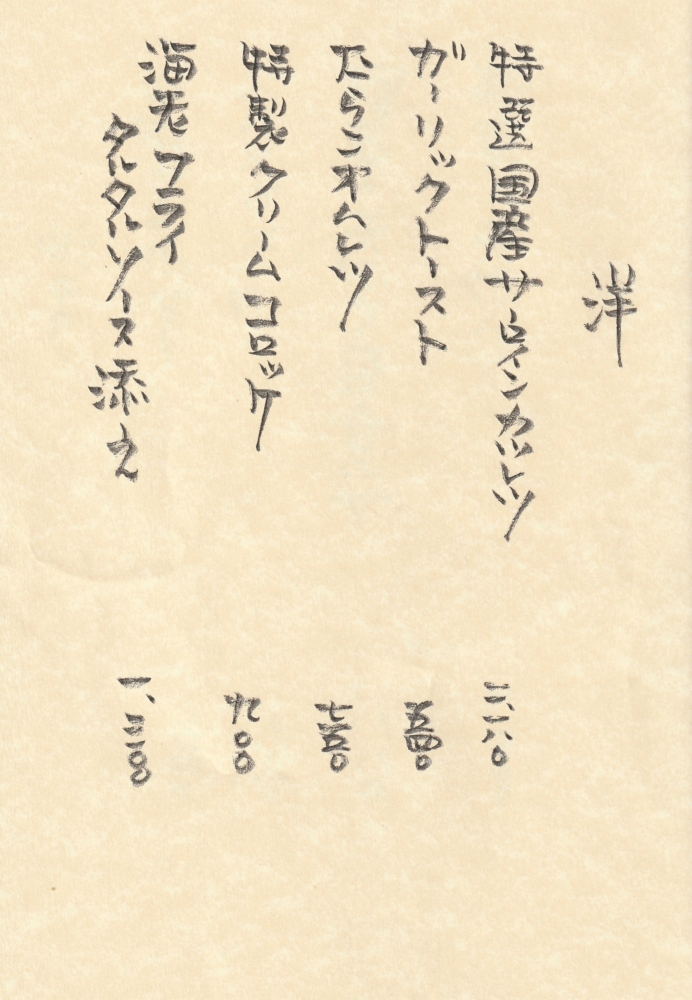 洋
特選国産サーロインカツレツ 二、一八〇
ガーリックトースト 五四〇
たらこオムレツ 七五〇
特製クリームコロッケ 九〇〇
海老フライ
タルタルソース添え 一、三〇〇